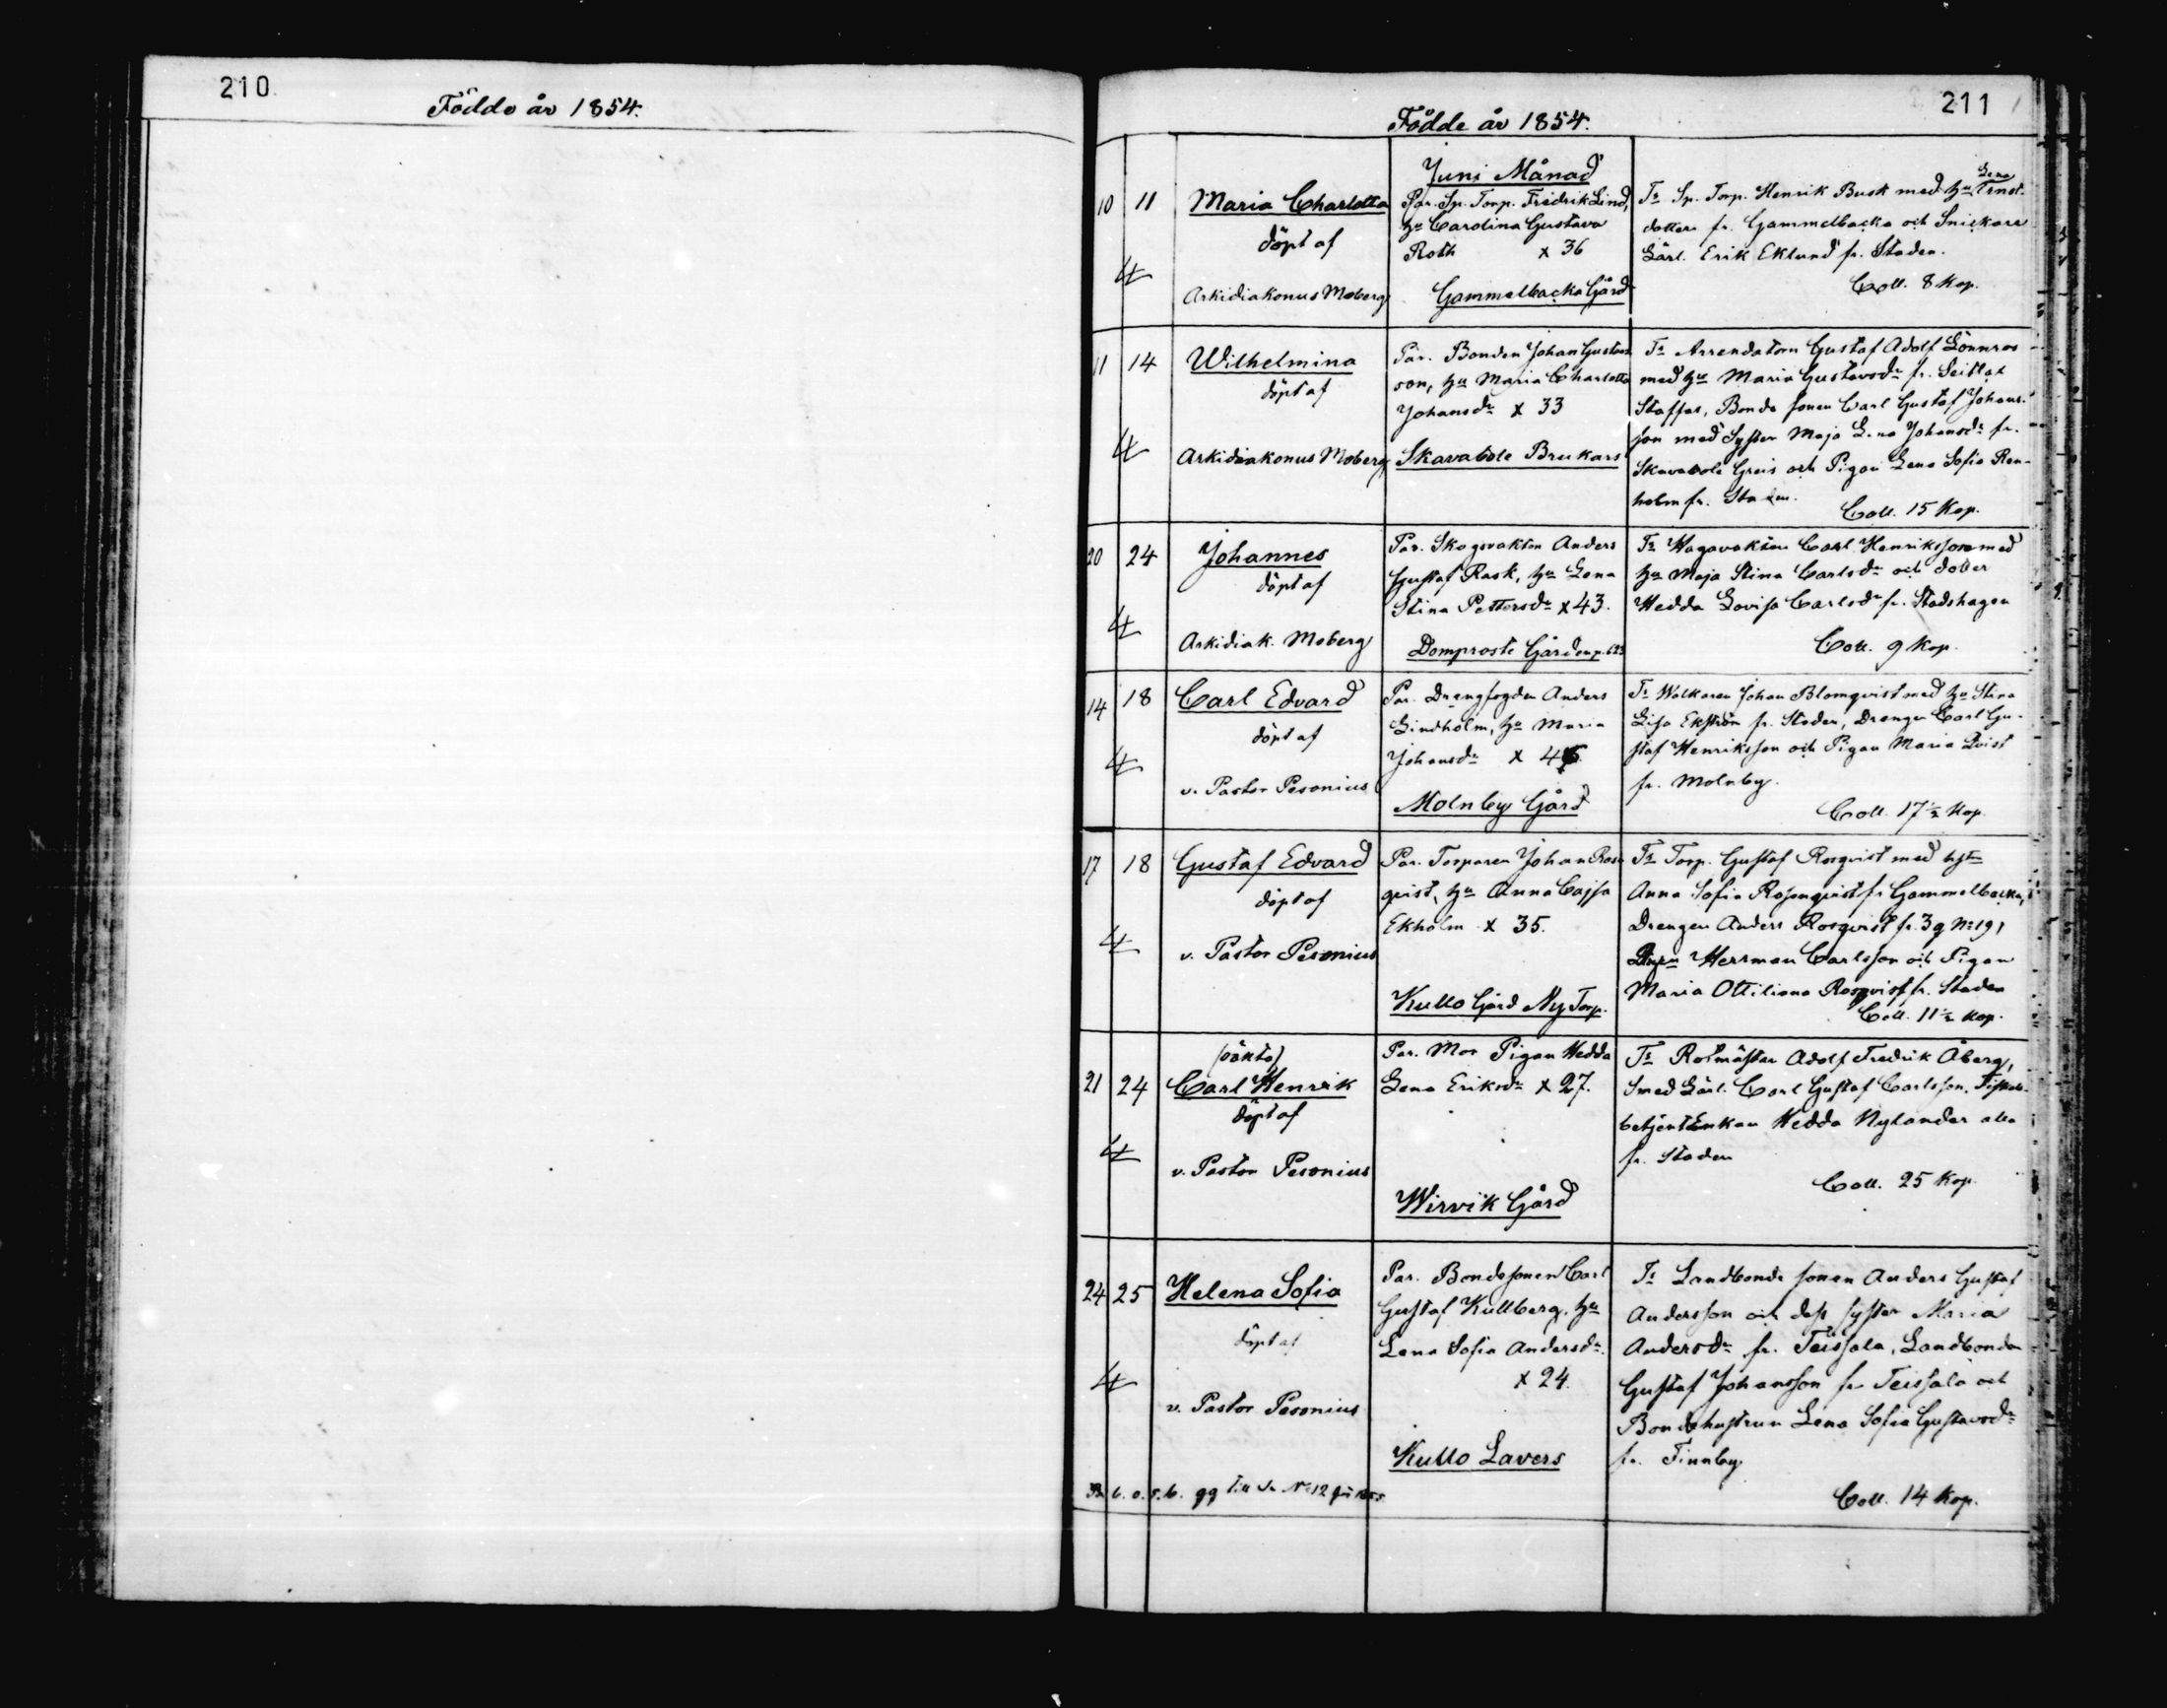 210
Födde år 1854.
211
Födde år 1854.
Juni Månad
10 11 Maria Charlotta
döpt af
Arkidiakonus Moberg
Par. Sp. Torp. Fredrik Lind,
hu Carolina Gustava
Roth x 36
Gammelbacka Gård
Tr Sp. Torp. Henrik Busk med hu Lena Ernst-
dotter fr. Gammelbacka och Snickare
Lärl. Erik Eklund fr. Staden.
Coll. 8 Kop.
11 14 Wilhelmina
döpt af
Arkidiakonus Moberg
Par. Bonden Johan Gustavs
son, hu Maria Charlotta
Johansdr x 33
Skavabole Brukars
Tr Arrendatorn Gustaf Adolf Lönnros
med hu Maria Gustavsdr fr. Seitlax
Staffas, Bonde sonen Carl Gustaf Johans-
son med Syster Maja Lena Johansdr fr.
Skavabole Greis och Pigan Lena Sofia Ren-
holm fr. Staden.
Coll. 15 Kop.
20 24 Johannes
döpt af
Arkidiak. Moberg
Par. Skogsvakten Anders
Gustaf Rask, hu Lena
Stina Pettersdr x 43.
Domprosts Gården p.
Tr Wagavakten Carl Henriksson med
hu Maja Stina Carlsdr och dotter
Hedda Lovisa Carlsdr fr. Stadshagen
Coll. 9 Kop.
14 18 Carl Edvard
döpt af
v. Pastor Pesonius
Par. Drengfogden Anders
Lindholm, hu Maria
Johansdr x 45.
Molnby Gård
Tr Walkaren Johan Blomqvist med hu Stina
Lisa Ekström fr. Staden, Drengen Carl Gu-
staf Henriksson och Pigan Maria Qvist
fr. Molnby.
Coll. 17½ Kop.
17 18 Gustaf Edvard
döpt af
v. Pastor Pesonius
Par. Torparen Johan Ros-
qvist, hu Anna Cajsa
Ekholm x 35.
Kullo Gård Ny Torp.
Tr Torp. Gustaf Rosqvist med
Anna Sofia Rosenqvist fr. Gammelbacka,
Drengen Anders Rosqvist fr.
Herrman Carlsson och Pigan
Maria Ottiliana Rosqvist fr. Staden
Coll. 11½ Kop.
(oäkta)
21 24 Carl Henrik
döpt af
v. Pastor Pesonius
Par. Mor Pigan Hedda
Lena Eriksdr x 27.
Wirvik Gård
Tr Rotmästar Adolf Fredrik Åberg,
Smed Lärl. Carl Gustaf Carlsson,
betjent Enkan Hedda Nylander alla
fr. Staden
Coll. 25 Kop.
24 25 Helena Sofia
döpt af
v. Pastor Pesonius
Par. Bondesonen Carl
Gustaf Kullberg, hu
Lena Sofia Andersdr.
x 24.
Kullo Lavers
Tr Landbonde sonen Anders Gustaf
Andersson och dess syster Maria
Andersdr fr. Teissala, Landbonden
Gustaf Johansson fr. Teissala och
Bondehustrun Lena Sofia Gustavsdr
fr. Finnby
Coll. 14 Kop.